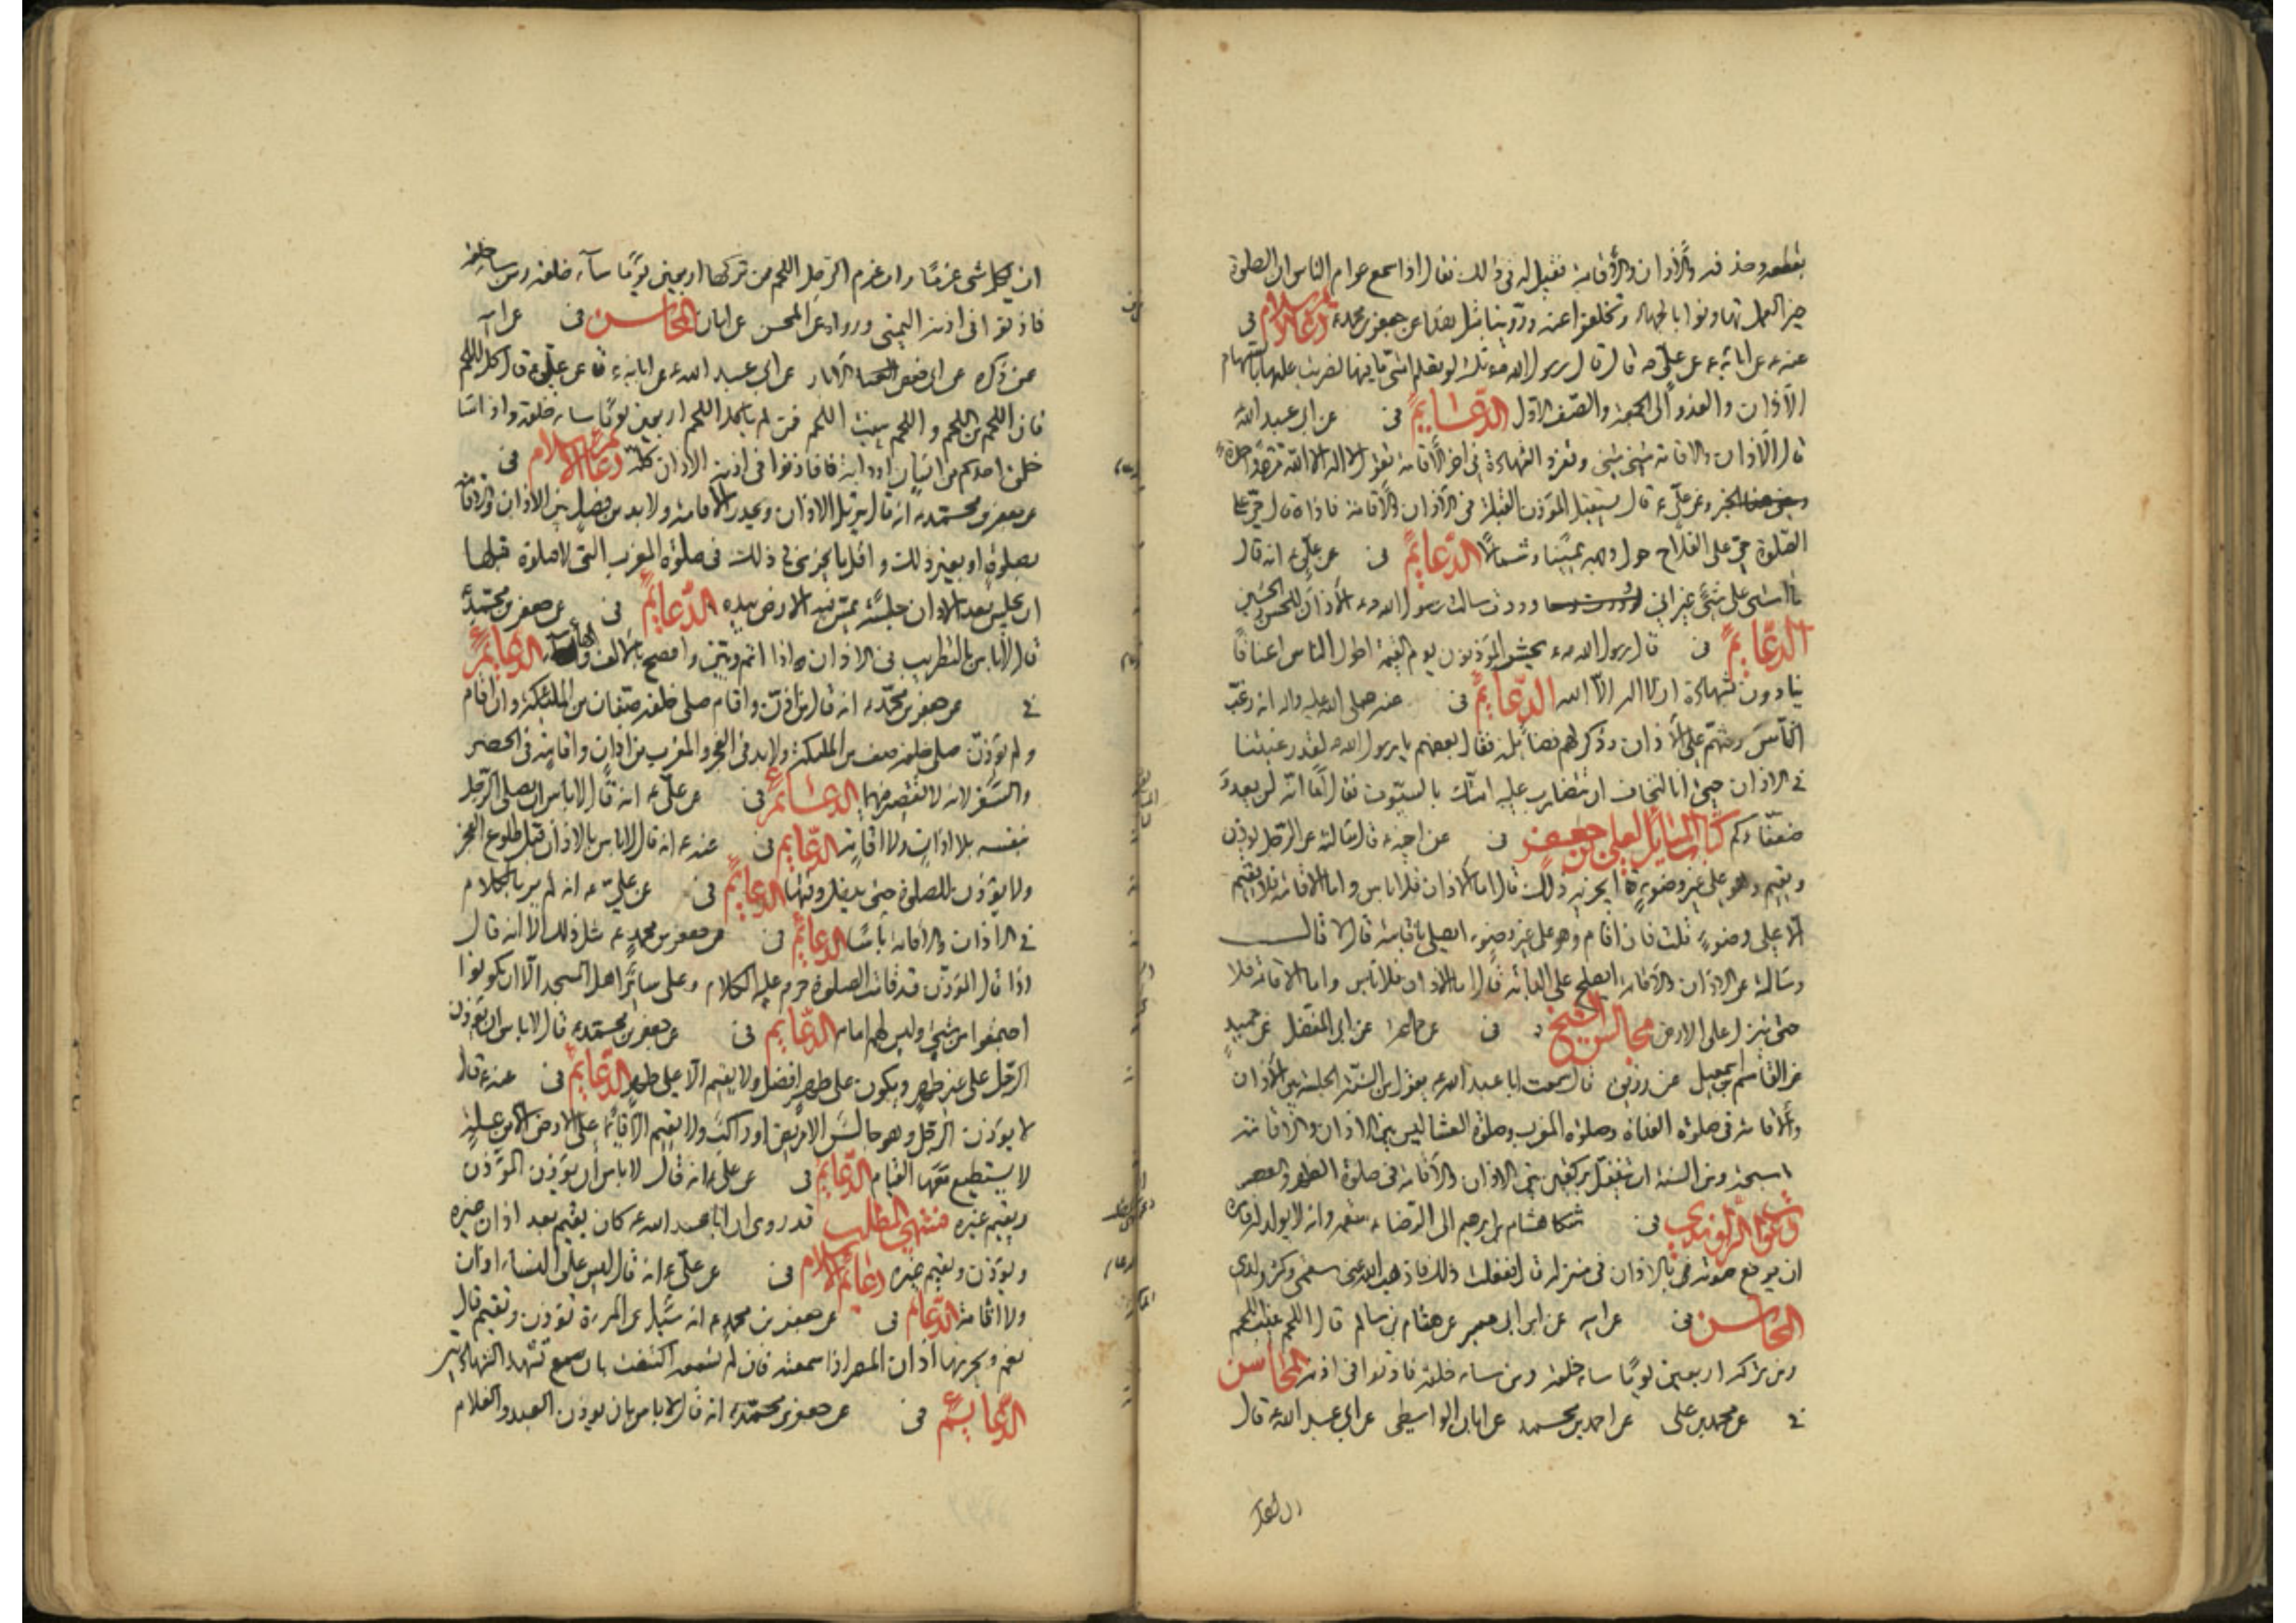 بقطعه وحذفه من الأذان والأقامة فقيل له فى ذلك فقال اذا سمع عوام الناس ان الصلوة
خير العمل تهاونوا بالجهاد وتخلفوا عنه وروينا مثل هذا عن جعفر بن محمد ع دعائم الاسلام فى
عنه ع عن ابائه ع عن على ع قال قال رسول الله ص ثلث لو تعلم امتى ما فيها لضربت عليها بالسهام
الأذان والغدو الى الجمعة والصف الاول الدعائم فى عن ابى عبد الله
قال الأذان والاقامة مثنى مثنى وتفرد الشهادة فى اخر الأقامة تقول لا اله الا الله مرة واحدة
وعن على ع قال يستقبل المؤذن القبلة فى الأذان والأقامة فاذا قال حى على
الصلوة حى على الفلاح حول وجهه يمينا وشمالا الدعائم فى عن على ع انه قال
ما اسى على شئ غير انى وددت سالت رسول الله ص الأذان للحسن والحسين
الدعائم فى قال رسول الله ص يحشر المؤذنون يوم القيمة اطول الناس اعناقا
ينادون بشهادة ان لا اله الا الله الدعائم فى عنه صلى الله عليه واله انه رغب
الناس وحثهم على الأذان وذكر لهم فضائله فقال بعضهم يا رسول الله لقد رغبتنا
فى الاذان حتى انا لنخاف ان تتضارب عليه امتك بالسيوف فقال اما انه لن يعدو
ضعفاءكم كتاب المسائل لعلى بن جعفر فى عن اخيه ع قال سالته عن الرجل يؤذن
ويقيم وهو على غير وضوء ايجزيه ذلك قال اما الاذان فلا باس واما الاقامة فلا يقيم
الا على وضوء قلت فان اقام وهو على غير وضوء ايصلى باقامته قال لا قال
وسالته عن الاذان والاقامة ايصلح على الدابة قال اما الاذان فلا باس واما الاقامة فلا
حتى ينزل على الارض مجالس الشيخ فى عن جماعة عن ابى المفضل عن حميد
عن القاسم بن اسمعيل عن زريق قال سمعت ابا عبد الله ع يقول من السنة الجلسة بين الأذان
والأقامة فى صلوة الغداة وصلوة المغرب وصلوة العشا ليس بين الاذان والاقامة
سبحة ومن السنة ان يتنفل بركعتين بين الاذان والاقامة فى صلوة الظهر والعصر
دعوات الراوندى فى شكا هشام بن ابرهيم الى الرضا ع سقمه وانه لا يولد له فامره
ان يرفع صوته بالاذان فى منزله قال ففعلت ذلك فاذهب الله عنى سقمى وكثر ولدى
المحاسن فى عن ابيه عن ابن ابى عمير عن هشام بن سالم قال اللحم ينبت اللحم
ومن تركه اربعين يوما ساء خلقه ومن ساء خلقه فاذنوا فى اذنه المحاسن
فى عن محمد بن على عن احمد بن محمد عن ابان الواسطى عن ابى عبد الله ع قال
ان لكل
ان لكل شئ قرما وان قرم الرجل اللحم فمن تركه اربعين يوما ساء خلقه ومن ساء خلقه
فاذنوا فى اذنه اليمنى ورواه عن المحسن عن ابان المحاسن فى عن ابيه
عمن ذكره عن ابى حفص الابار عن ابى عبد الله ع عن ابائه ع عن على ع قال كلوا اللحم
فان اللحم من اللحم واللحم ينبت اللحم فمن لم ياكل اللحم اربعين يوما ساء خلقه واذا ساء
خلق احدكم من انسان او دابة فاذنوا فى اذنه الاذان كله دعائم الاسلام فى
عن جعفر بن محمد ع انه قال يرتل الاذان ويحدر الاقامة ولا بد من فصل بين الاذان والاقامة
بصلوة او بغير ذلك واقل ما يجزى فى ذلك فى صلوة المغرب التى لا صلوة قبلها
ان يجلس بعد الاذان جلسة يمس فيها الارض بيده الدعائم فى عن جعفر بن محمد ع
قال لا باس بالتطريب فى الاذان اذا اتم وبين وافصح بالالف والهاء الدعائم
فى عن جعفر بن محمد ع انه قال من اذن واقام صلى خلفه صفان من الملئكة وان اقام
ولم يؤذن صلى خلفه صف من الملئكة ولا بد فى الفجر والمغرب من اذان واقامة فى الحضر
والسفر لانه لا تقصير فيهما الدعائم فى عن على ع انه قال لا باس ان يصلى الرجل
بنفسه بلا اذان ولا اقامة الدعائم فى عنه ع انه قال لا باس بالاذان قبل طلوع الفجر
ولا يؤذن للصلوة حتى يدخل وقتها الدعائم فى عن على ع انه لم ير بالكلام
فى الاذان والاقامة باسا الدعائم فى عن جعفر بن محمد ع مثل ذلك الا انه قال
اذا قال المؤذن قد قامت الصلوة حرم عليه الكلام وعلى سائر اهل المسجد الا ان يكونوا
اجتمعوا من شتى وليس لهم امام الدعائم فى عن جعفر بن محمد ع قال لا باس ان يؤذن
الرجل على غير طهر ويكون على طهر افضل ولا يقيم الا على طهر الدعائم فى عنه ع قال
لا يؤذن الرجل وهو جالس الا مريض او راكب ولا يقيم الا قائما على الارض الا من علة
لا يستطيع معها القيام الدعائم فى عن على ع انه قال لا باس ان يؤذن المؤذن
ويقيم غيره منتهى المطلب قد روى ان ابا عبد الله ع كان يقيم بعد اذان غيره
ويؤذن ويقيم غيره دعائم الاسلام فى عن على ع انه قال ليس على النساء اذان
ولا اقامة الدعائم فى عن جعفر بن محمد ع انه سئل عن المرءة تؤذن وتقيم قال
نعم ويجزيها اذان المصر اذا سمعته فان لم تسمعه اكتفت بان تشهد الشهادتين
الدعائم فى عن جعفر بن محمد ع انه قال لا باس بان يؤذن العبد والغلام